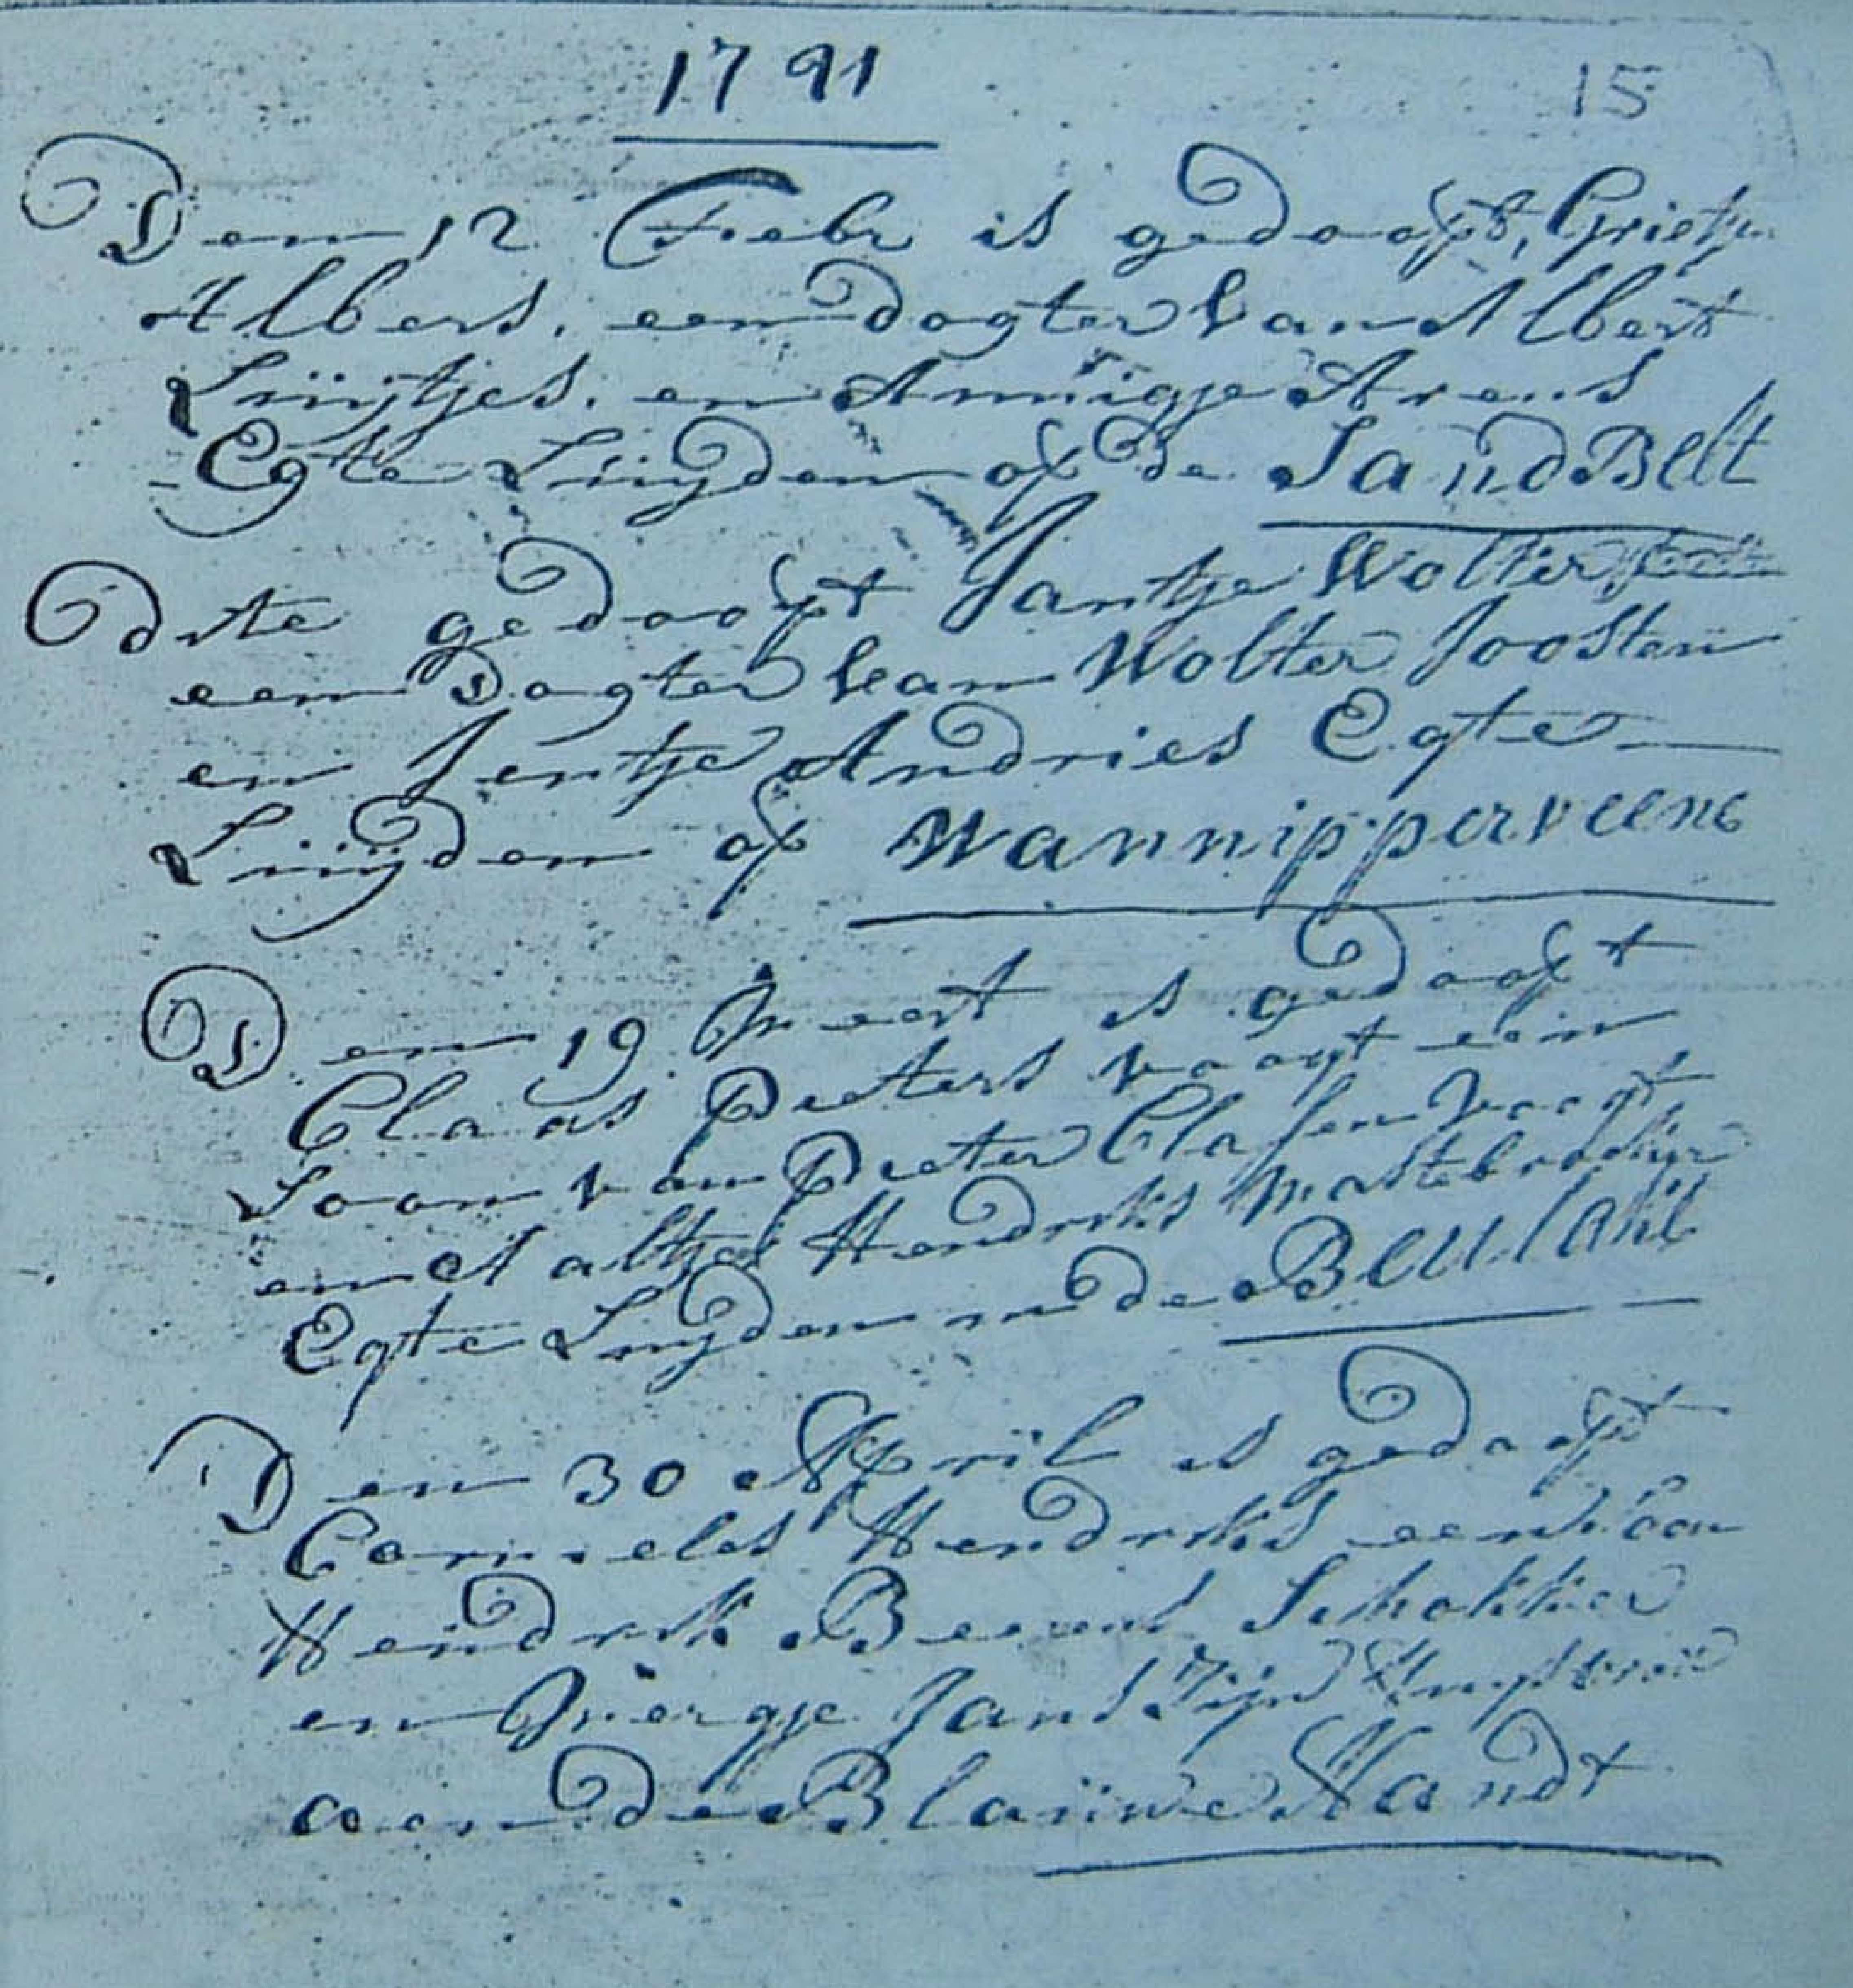 1791
15
Den 12 Febr is gedoopt, Grietje
Albers. een dogter van Albert
Luijtjes. en Annigje Arens
Egte Luijden op de SandBelt
Dito gedoopt Jantje Wolters
een Dogter van Wolter Joosten
en Jentje Andries Egte
Luijden op Wannipperveene
Den 19 Meert is gedoopt
Claas Peeters voogt een
Soon van Peeter Clasen voogt
en Aaltje Hendriks Mastebroekijn
Egte Luijden in de Beulake
Den 30 April is gedoopt
Cornelis Hendriks een soon
Hendrik Beerens Schokker
en Mergje Jans Zijn
aan de Blauwe Handt